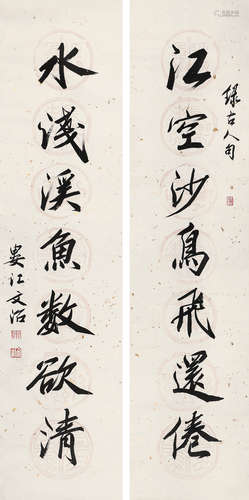 江空沙鳥飛還倦
錄古人句
水淺溪魚數欲清
婁江文治